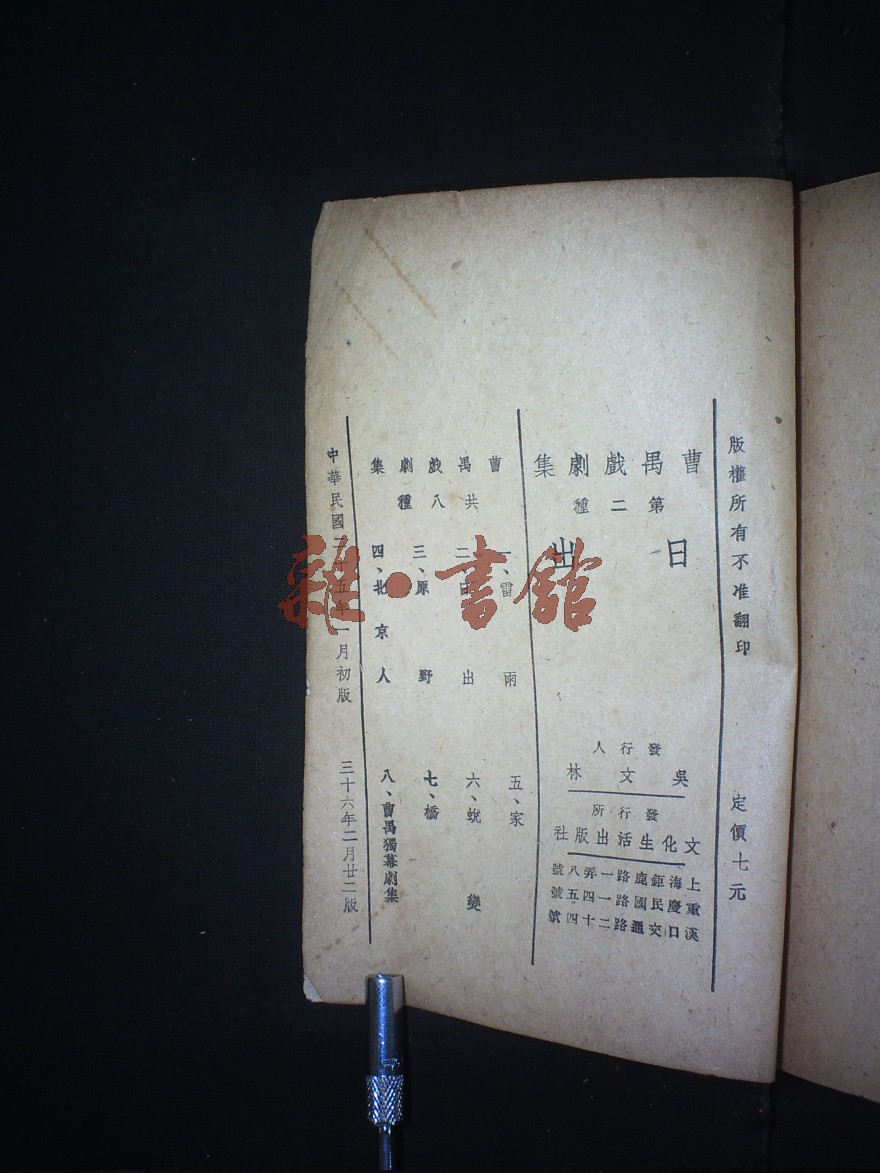 版權所有不准翻印
定價七元
曹禺戲劇集
第二種
日出
發行人
吳文林
發行所
文化生活出版社
上海鉅鹿路一弄八號
重慶民國路一四五號
漢口交通路二十四號
曹禺戲劇集
共八種
一、雷雨
二、日出
三、原野
四、北京人
五、家
六、蛻變
七、橋
八、曹禺獨幕劇集
中華民國二十五年一月初版
三十六年二月廿二版
雜·書館